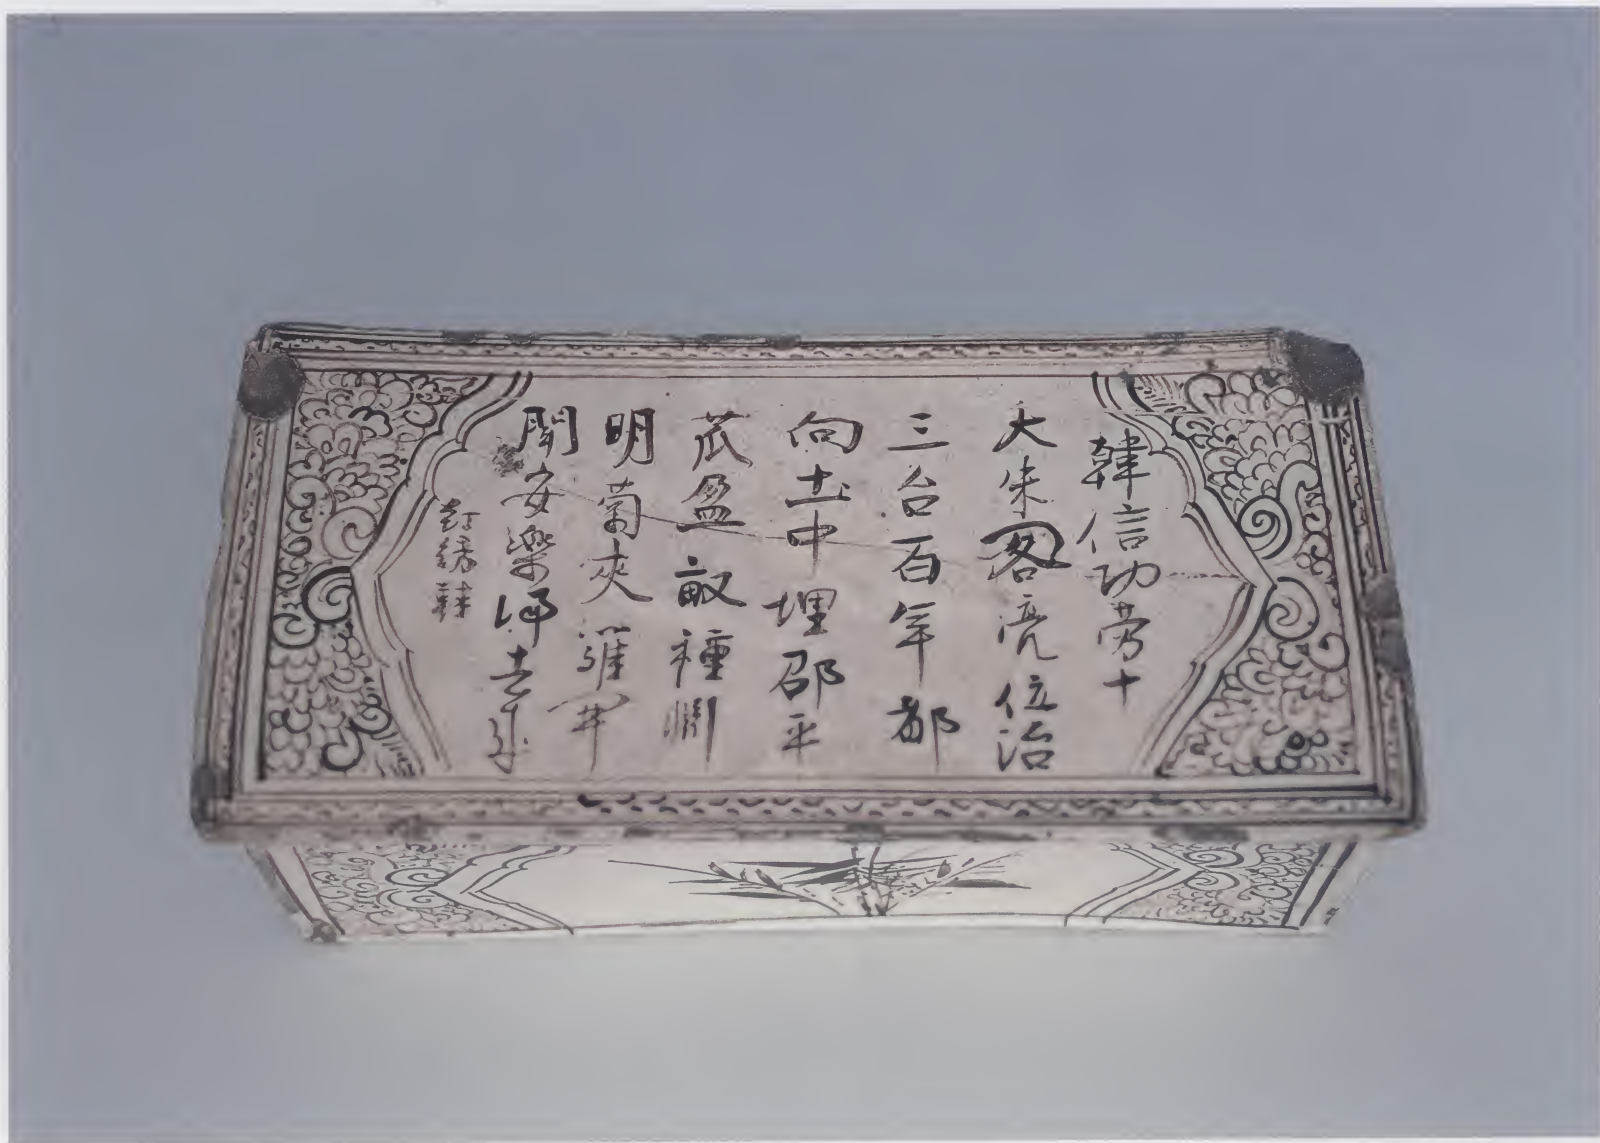 韓信功劳十
大朱阁亮位治
三台百年都
向土中埋邵平
苽盈畝種渊
明菊夾籬開
閑安樂归去来
紅綉鞋